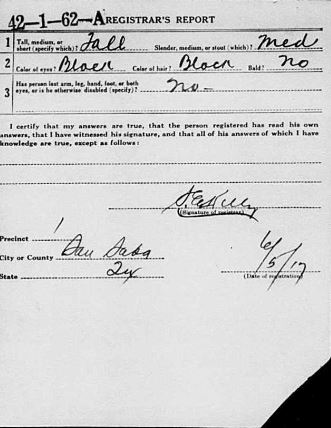 42-1-62-A REGISTRAR'S REPORT
1 Tall, medium, or short (specify which)? Tall Slender, medium, or stout (which)? Med
2 Color of eyes? Blacn Color of hair? Blacn Bald? No
3 Has person lost arm, leg, hand, foot, or both eyes, or is he otherwise disabled (specify)? No-
I certify that my answers are true, that the person registered has read his own
answers, that I have witnessed his signature, and that all of his answers of which I have
knowledge are true, except as follows:
(Signature of registrar)
Precinct 1
City or County San Saba
State Tx
6/5/17
(Date of registration)